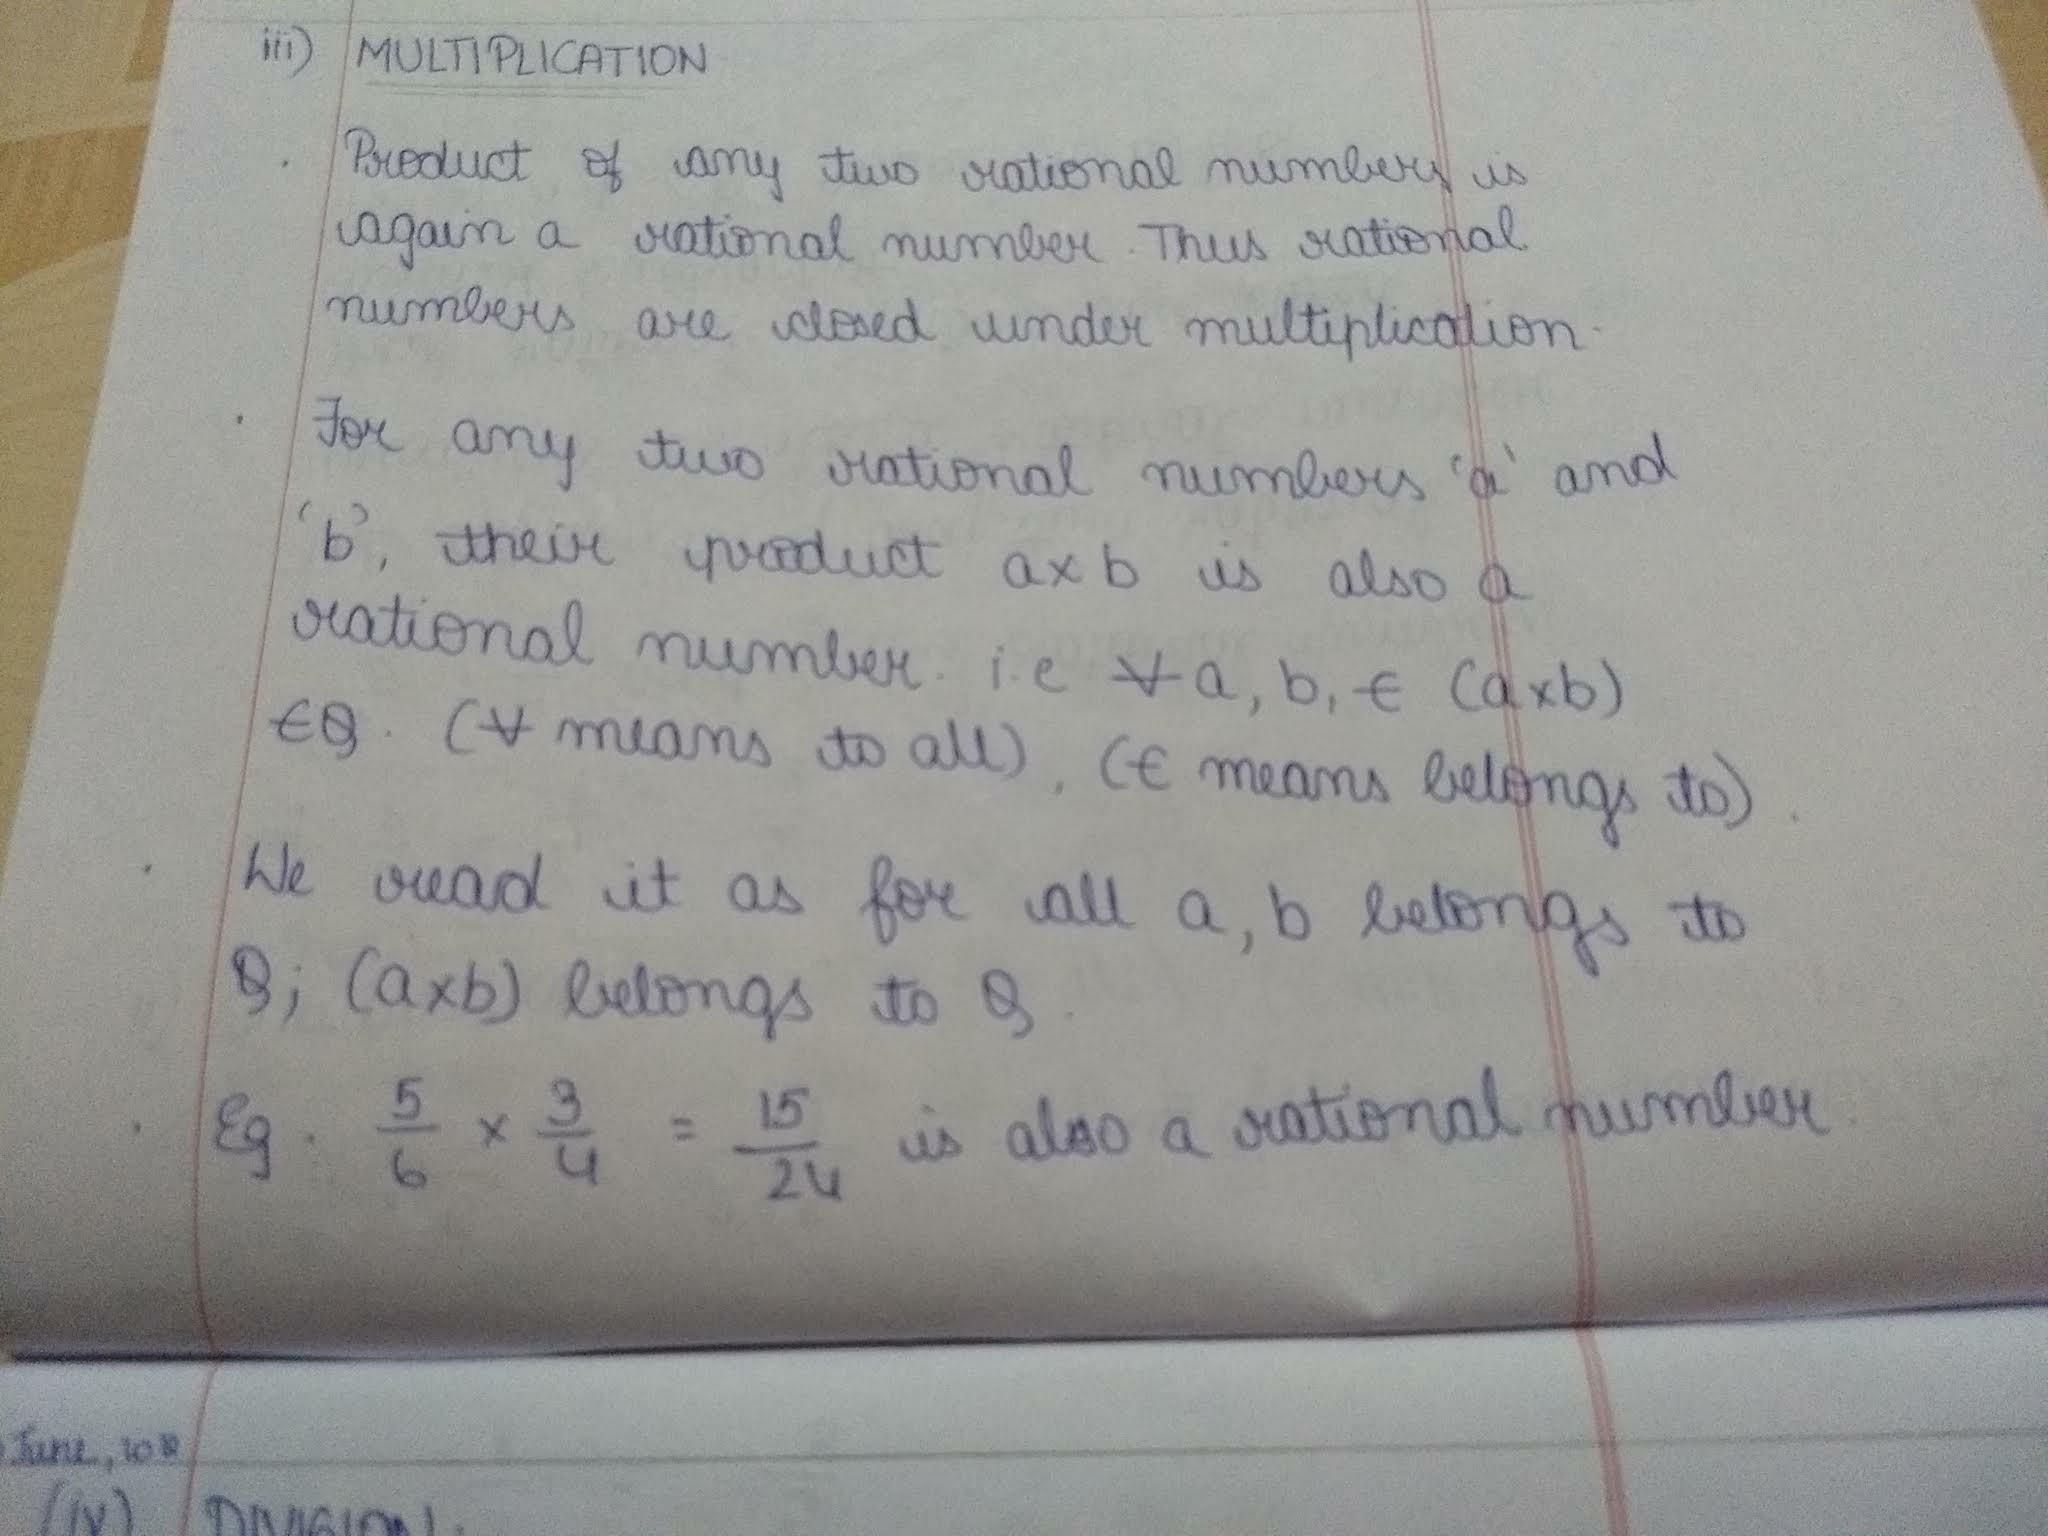 iii) MULTIPLICATION
. Product of any two rational numbers is
again a rational number. Thus rational
numbers are closed under multiplication.
. For any two rational numbers 'a' and
'b', their product a×b is also a
rational number. i.e ∀ a, b, ∈ (a×b)
∈Q. (∀ means to all), (∈ means belongs to).
. We read it as for all a, b belongs to
Q; (a×b) belongs to Q.
. Eg. 5/6 × 3/4 = 15/24 is also a rational number.
June,
(iv) DIVISION.